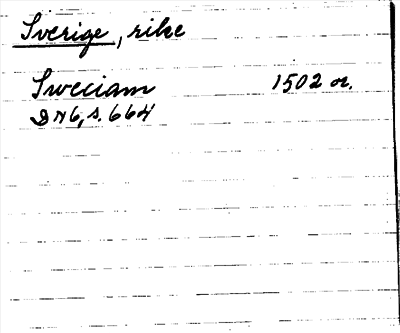 Sverige, rike
Sweciam 1502 or.
DN6, s. 664